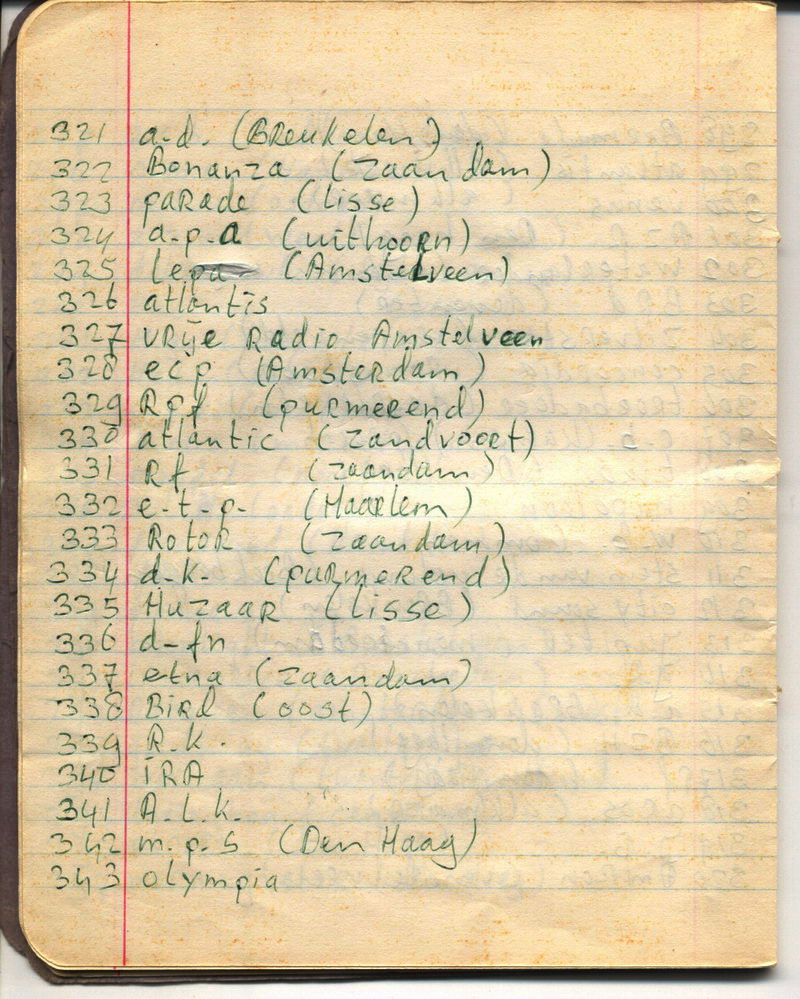 321 a-d. (BReukelen)
322 Bonanza (zaandam)
323 paRade (lisse)
324 a.p.a (uithooRn)
325 lepa (Amstelveen)
326 atlantis
327 VRije Radio Amstelveen
328 ecp (AmsteRdam)
329 Rpf (puRmerend)
330 atlantic (zandvooRt)
331 Rf (zaandam)
332 e-t-p- (HaaRlem)
333 RotoR (zaandam)
334 d-k- (puRmeRend)
335 HuzaaR (lisse)
336 d-fn
337 etna (zaandam)
338 BiRd (oost)
339 R.k.
340 iRA
341 A.L.k.
342 m.p.s (Den Haag)
343 olympia